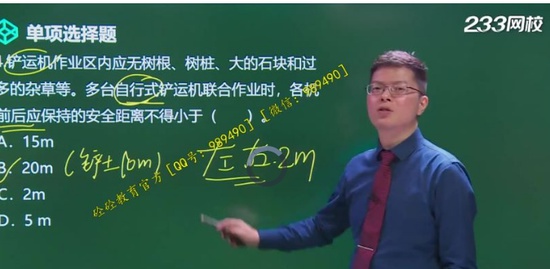 233网校
单项选择题
铲运机作业区内应无树根、树桩、大的石块和过
多的杂草等。多台自行式铲运机联合作业时，各机
前后应保持的安全距离不得小于（ ）。
A. 15m
B. 20m (铲土10m) 左、右.2m
C. 2m
D. 5 m
砼砼教育官方 [QQ号：989490] [微信：989490]